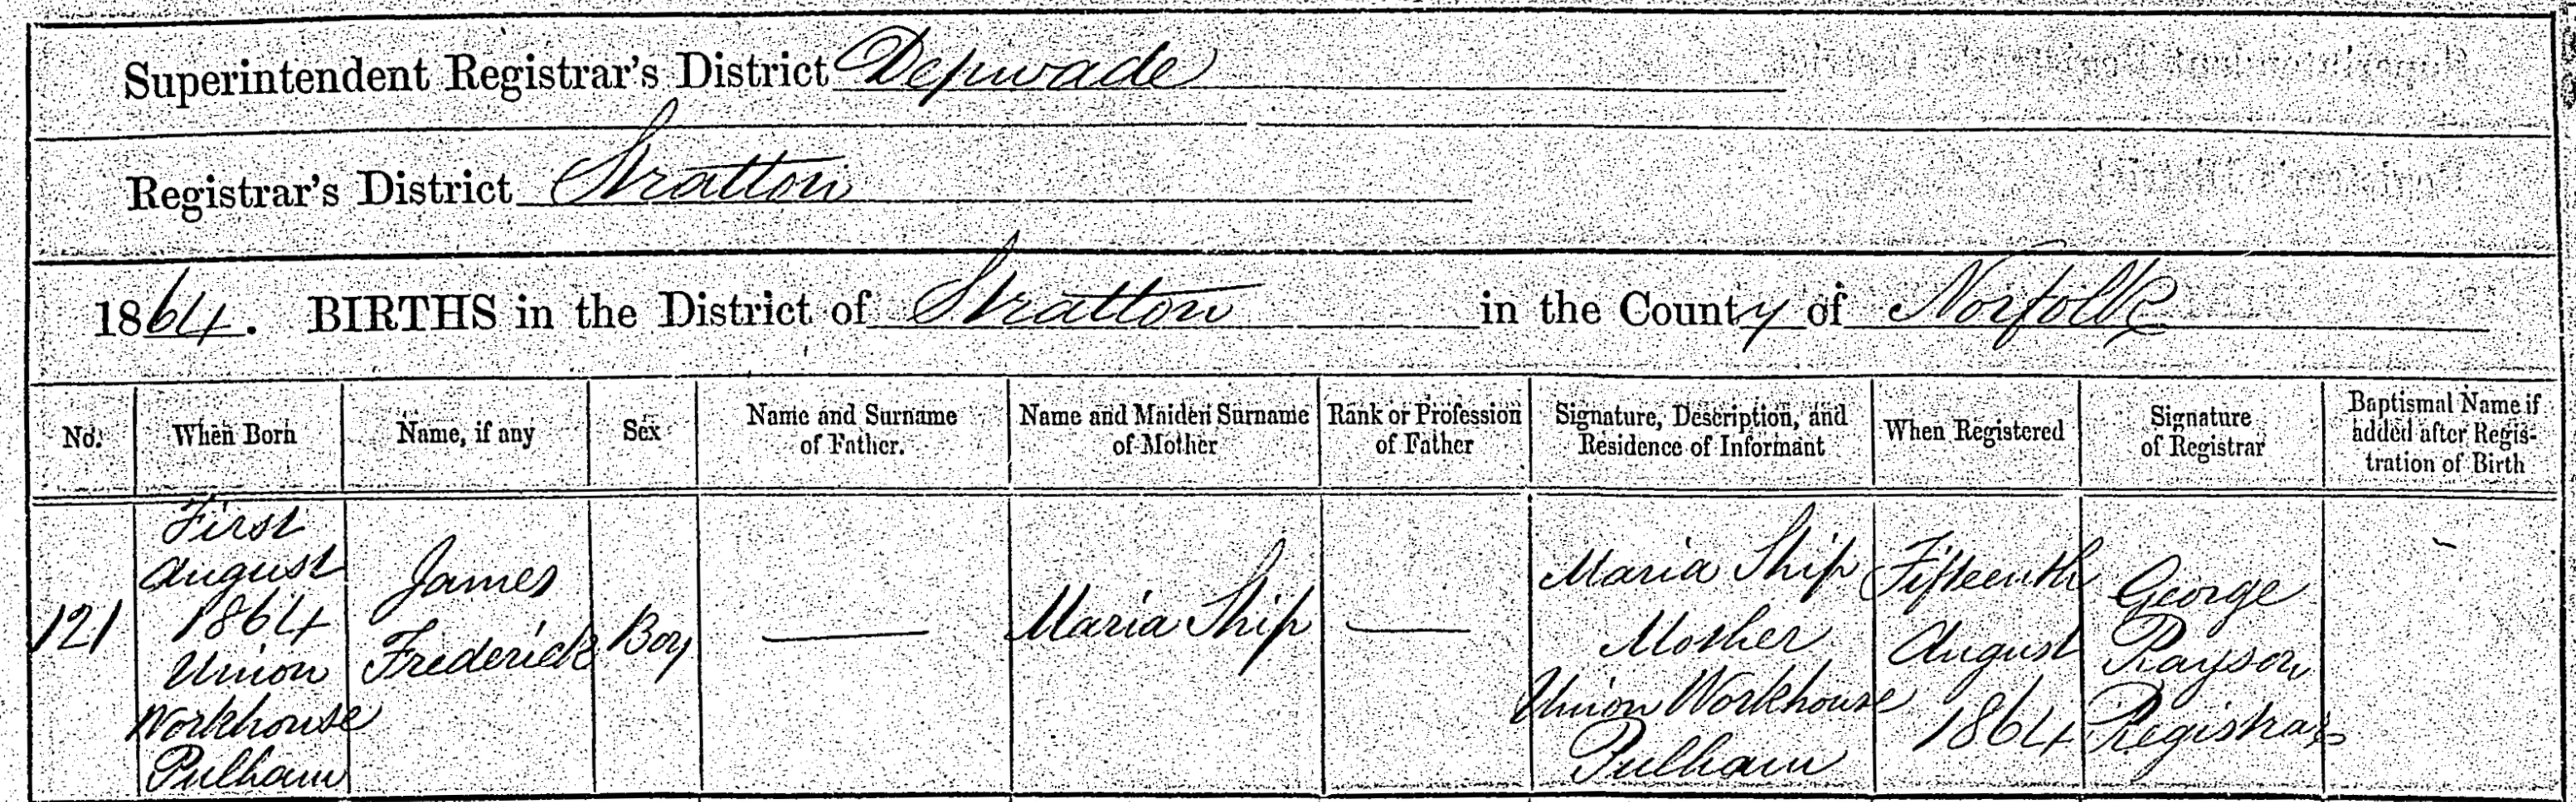 Superintendent Registrar's District Depwade
Registrar's District Stratton
1864. BIRTHS in the District of Stratton in the County of Norfolk
No.
When Born
Name, if any
Sex
Name and Surname
of Father.
Name and Maiden Surname
of Mother
Rank or Profession
of Father
Signature, Description, and
Residence of Informant
When Registered
Signature
of Registrar
Baptismal Name if
added after Regis-
tration of Birth
121
First
August
1864
Union
Workhouse
Pulham
James
Frederick
Boy
—
Maria Ship
—
Maria Ship
Mother
Union Workhouse
Pulham
Fifteenth
August
1864
George
Rayson
Registrar